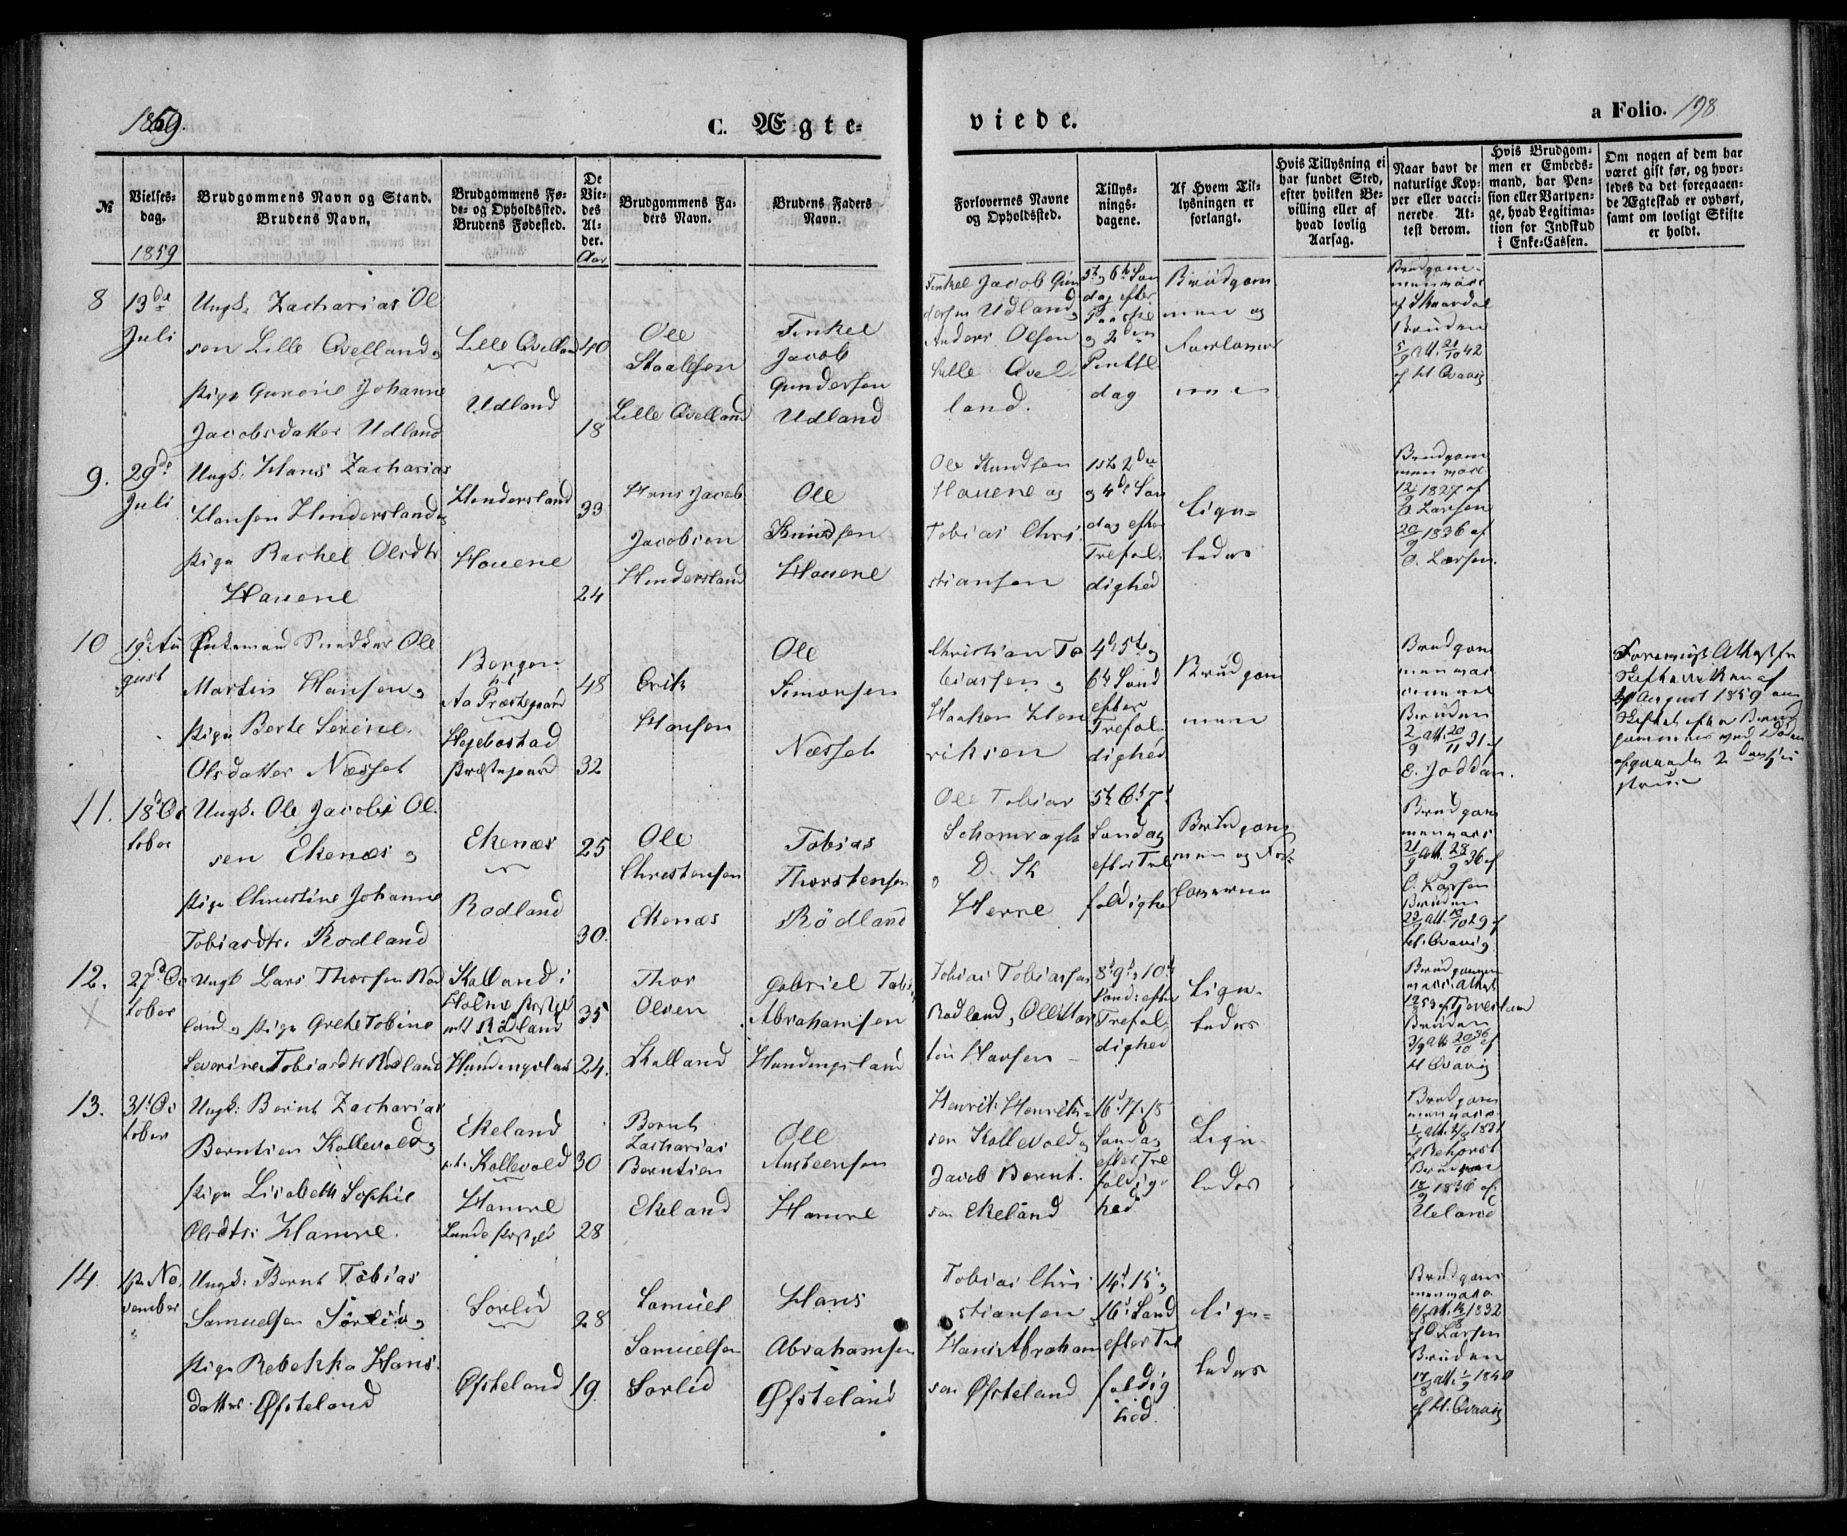 1859.
C. Ægte-
viede.
a Folio. 198
№
Vielses-
dag.
1859
Brudgommens Navn og Stand.
Brudens Navn.
Brudgommens Fø-
de- og Opholdssted.
Brudens Fødested.
De
Vie-
des
Al-
der.
Aar
Brudgommens Fa-
ders Navn.
Brudens Faders
Navn.
Forlovernes Navne
og Opholdssted.
Tillys-
nings-
dagene.
Af Hvem Til-
lysningen er
forlangt.
Hvis Tillysning ei
har fundet Sted,
efter hvilken Be-
villing eller af
hvad lovlig
Aarsag.
Naar havt de
naturlige Kop-
per eller vacci-
nerede At-
test derom.
Hvis Brudgom-
men er Embeds-
mand, har Pen-
sion eller Vartpen-
ge, hvad Legitima-
tion for Indskud
i Enke-Cassen.
Om nogen af dem har
været gift før, og hvor-
ledes da det foregaaen-
de Ægteskab er ophørt,
samt om lovligt Skifte
er holdt.
8
13de
Juli
Ungk. Zacharias Ol
sen Lille Qvelland og
Pige Gunvine Johanne
Jacobsdatter Udland
Lille Qvelland
Udland
40
18
Ole
Staalesen
Lille Qvelland
Tinkel
Jacob
Gundersen
Udland
Tinkel Jacob Gun
dersen Udland og
Anders Olsen
Lille Qvel
land.
5te og 6te Søn
dag efter
Paaske
og 2den
Pintse
dag
Brudgom
men og
Forlover
ne
Brudgom-
men vacc
Bruden
5/9 Att. 21/10 42
af H. Qvavig
9.
29de
Juli
Ungk. Hans Zacharias
Hansen Hindersland og
Pige Rachel Olsdtr
Hauene
Hindersland
Hauene
33
24
Hans Jacob
Jacobsen
Hindersland
Ole
Knudsen
Hauene
Ole Knudsen
Hauene og
Tobias Chri
stiansen
1ste 2den
og 4de Søn
dag efter
Trefol
dighed
Lige-
ledes
Brudgom
men vacc
12/9 1827 af
O. Larsen
20/9 1836 af
O. Larsen.
10
19de Au
gust
Enkemand Snedker Ole
Martin Hansen og
Pige Berte Serine
Olsdatter Næsset
Bergen
Aa Præstegaard
Hegebostad
Præstegaard
48
32
Erik
Hansen
Ole
Simonsen
Næsset
Christian To
biassen og
Haaken Hen
riksen
4de 5te og
6te Sønd
efter
Trefol
dighed
Brudgom
men
Brudgom
men vac
cineret
Bruden
2/9 Att. 20/11 31 af
E. Joddan.
Forevist Attest fra
Skifteretten af
August 1859 om
Skiftet efter Brud
gommens ved Døden
afgaaede 2den Hu
strue
11.
18de Oc
tober
Ungk. Ole Jacobi Ol
sen Ekenæs og
Pige Christine Johanne
Tobiasdtr. Rødland
Ekenæs
Rødland
25
30.
Ole
Christensen
Ekenæs
Tobias
Thorstensen
Rødland
Ole Tobias
Schomragh
og D. Th
Herre
5te 6te 7de
Søndag
efter Tre
foldighed
Brudgom
men og For
loverne
Brudgom
men vacc
21/9 Att. 28/9 36 af
O. Larsen
Bruden
29 af
H. Qvavig
12.
X
27de Oc
tober
Ungk Lars Thorsen Rød
land og Pige Grete Tobine
Severine Tobiasdtr Rødland
Skalland i
Holme Prstgd
nu Rødland
Hundingsland
35
24.
Thor
Olsen
Skalland
Gabriel Tobias
Abrahamsen
Hundingsland
Tobias Tobiassen
Rødland, Ole Mar
tin Hansen
8de 9de og 10de
Sønd: efter
Trefol
dighed
Lige-
ledes
Brudgommen
vacc. Attest
53 af
Bruden
3/9 Att. 20/10 36
af
H. Qvavig
13.
31te Oc
tober
Ungk: Bernt Zacharias
Berntsen Kollevold og
Pige Lisabeth Sophie
Olsdtr: Hamre.
Ekeland
p.t. Kollevold
Hamre
Lunde Prstgjd
30
28
Bernt
Zacharias
Berntsen
Ekeland
Ole
Austeensen
Hamre
Henrik Henrik-
sen Kollevold og
Jacob Bernt
sen Ekeland
16de 17. 18
Søndag
efter Tre
foldig-
hed
Lige-
ledes
Brudgom
men vacc
1831
af Rehorst
Bruden
18/9 1836 af
Ueland
14.
1ste No
vember
Ungk: Bernt Tobias
Samuelsen Sørlid og
Pige Rebekka Hans
datter Øfsteland
Sørlid
Øfsteland
28
19
Samuel
Samuelsen
Sørlid
Hans
Abrahamsen
Øfsteland
Tobias Chri
stiansen
Hans Abraham
sen Øfsteland
14de 15de og
16de Sønd
efter Tre
foldig
hed.
Lige-
ledes
Brudgom
men vacc
1832
af O Larsen
Bruden
17/8 Att. 1/9 1840
af H. Qvavig